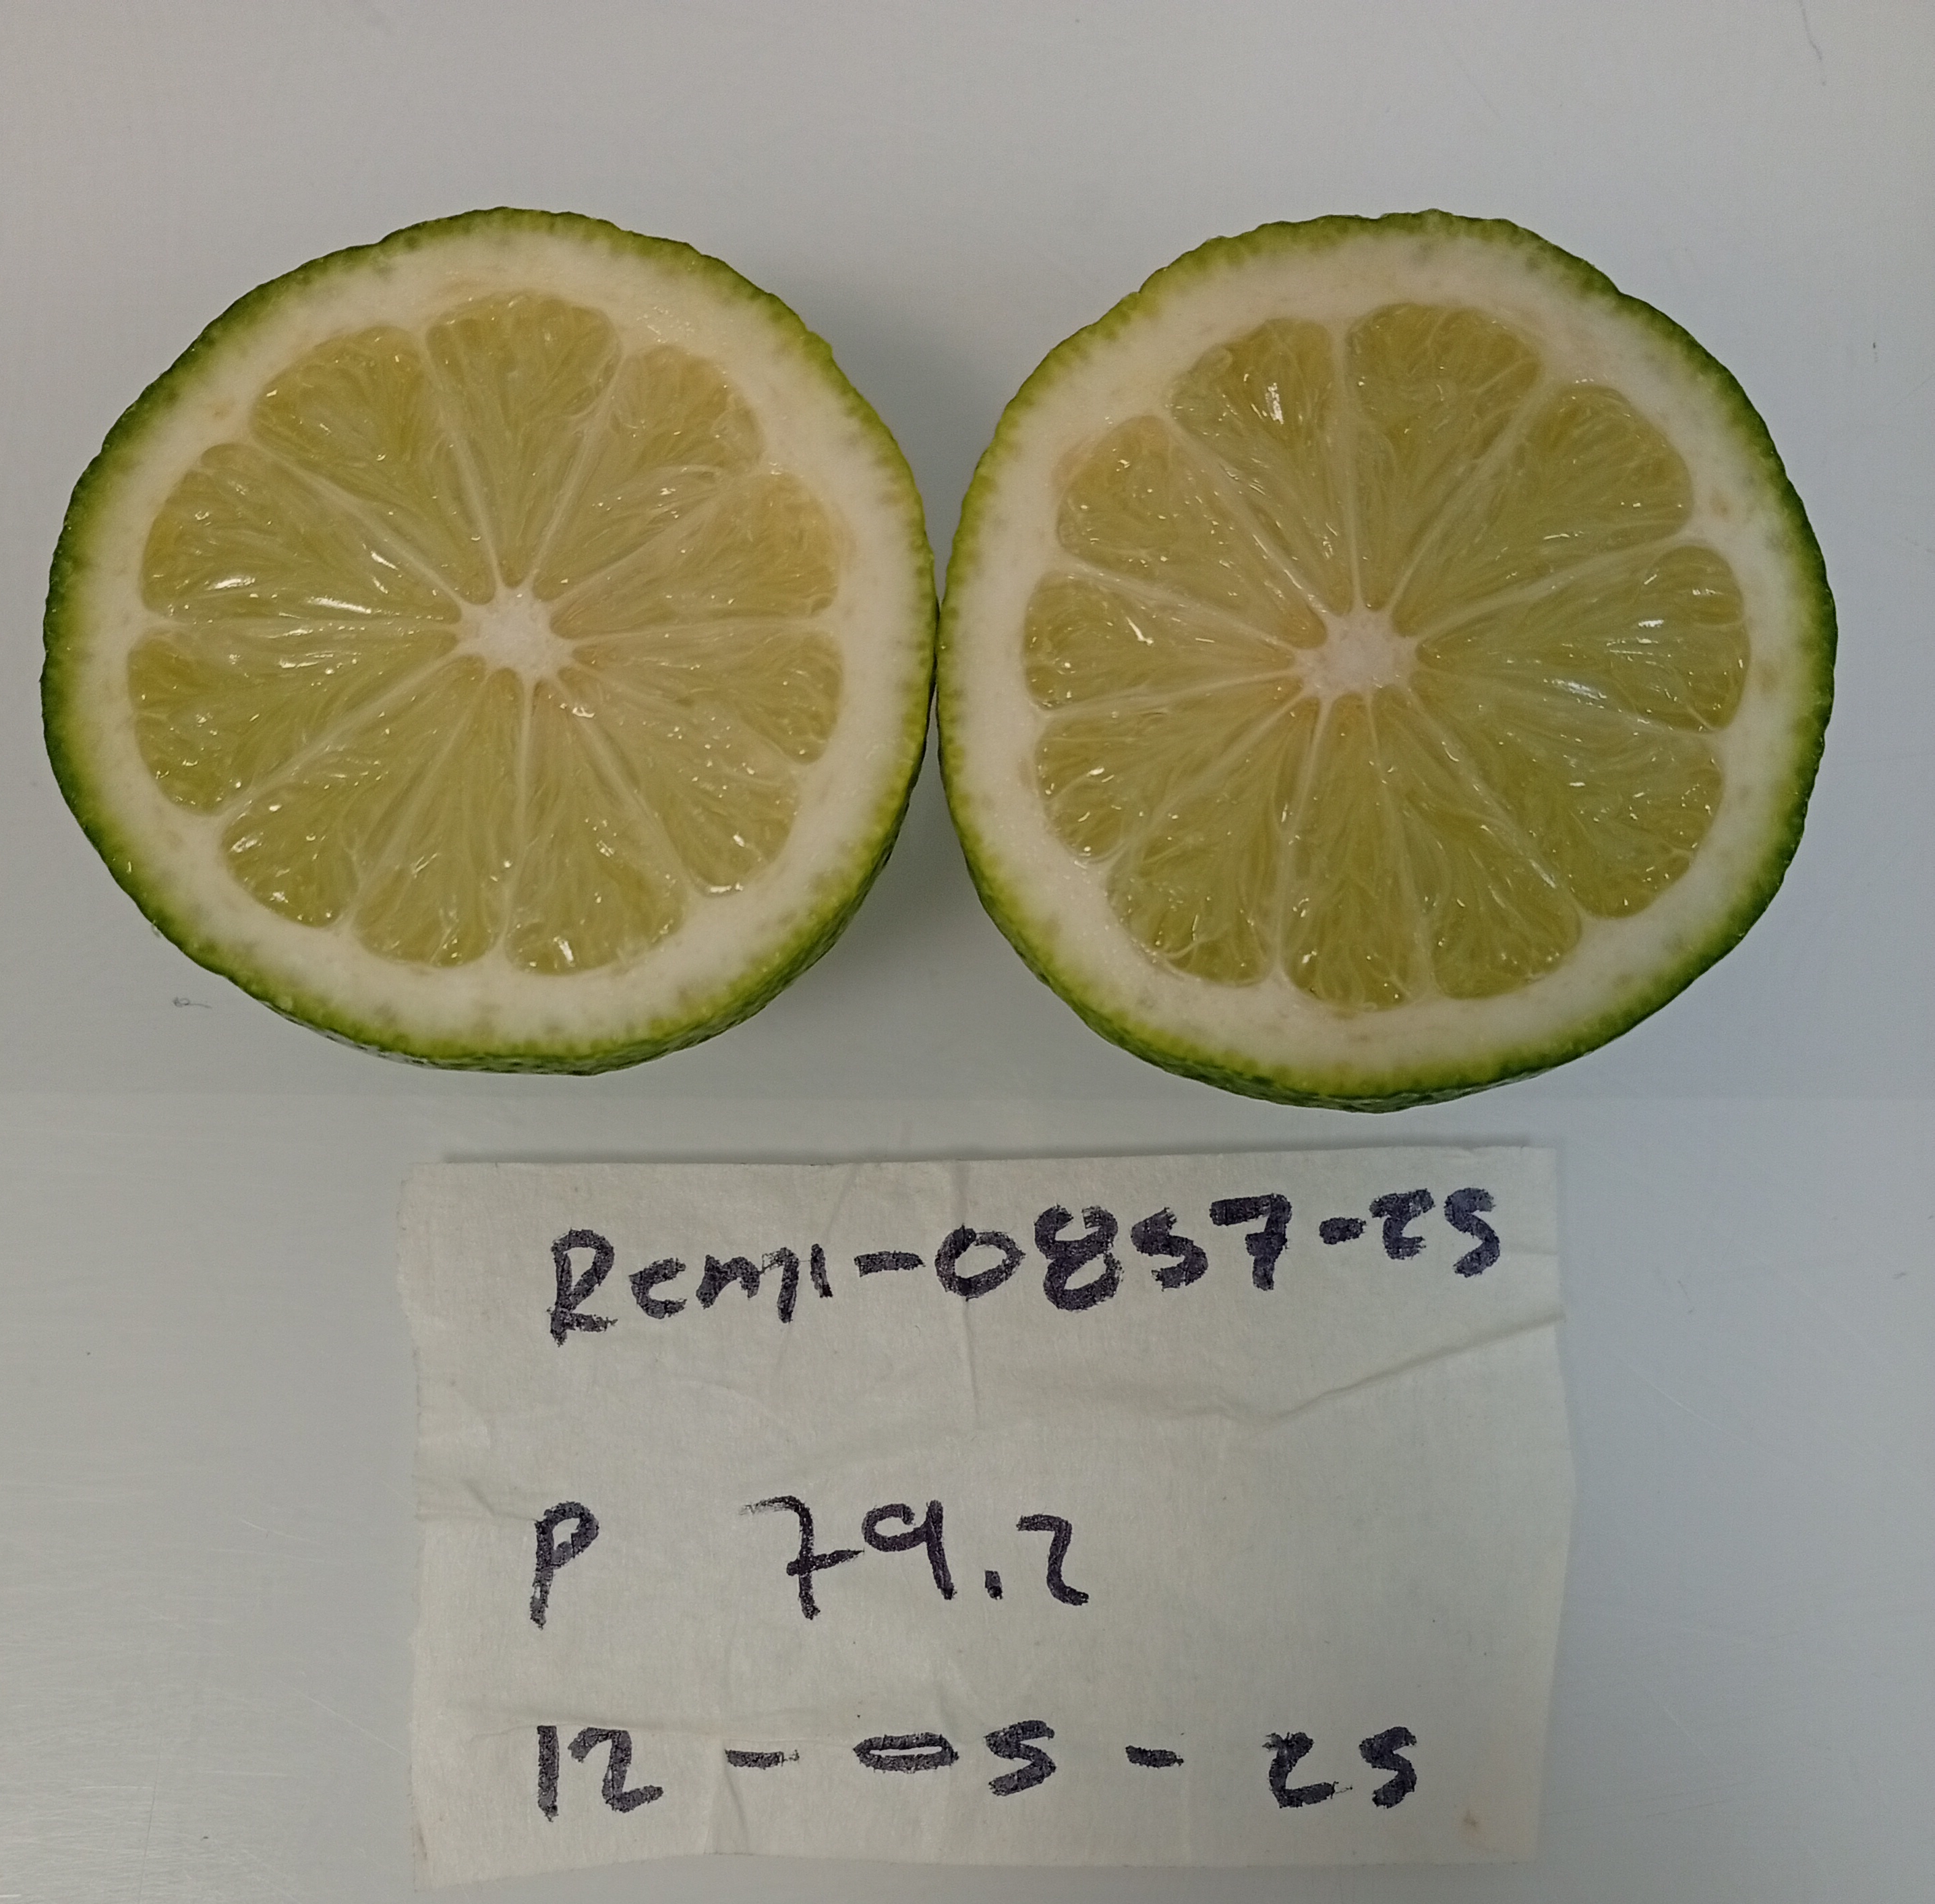 Rcml-0857-25
P 79.2
12-05-25